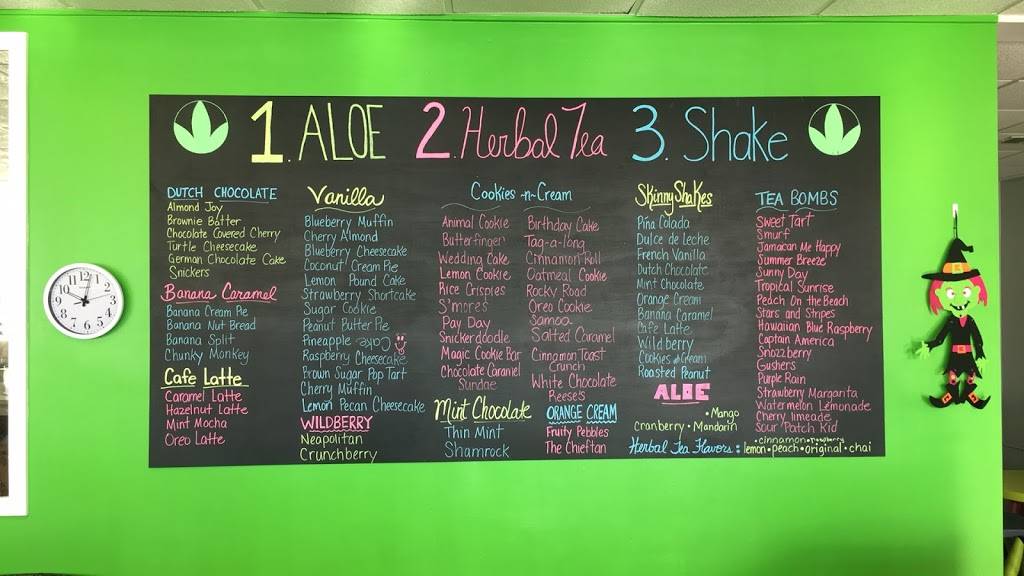 1. ALOE 2. Herbal Tea 3. Shake
DUTCH CHOCOLATE
Almond Joy
Brownie Batter
Chocolate Covered Cherry
Turtle Cheesecake
German Chocolate Cake
Snickers
Banana Caramel
Banana Cream Pie
Banana Nut Bread
Banana Split
Chunky Monkey
Cafe Latte
Caramel Latte
Hazelnut Latte
Mint Mocha
Oreo Latte
Vanilla
Blueberry Muffin
Cherry Almond
Blueberry Cheesecake
Coconut Cream Pie
Lemon Pound Cake
Strawberry Shortcake
Sugar Cookie
Peanut Butter Pie
Pineapple
Raspberry Cheesecake
Brown Sugar Pop Tart
Cherry Muffin
Lemon Pecan Cheesecake
WILDBERRY
Neapolitan
Crunchberry
Cookies -n- Cream
Animal Cookie
Butterfinger
Wedding Cake
Lemon Cookie
Rice Crispies
S'mores
Pay Day
Snickerdoodle
Magic Cookie Bar
Chocolate Caramel
Sundae
Birthday Cake
Tag-a-long
Cinnamon Roll
Oatmeal Cookie
Rocky Road
Oreo Cookie
Samoa
Salted Caramel
Cinnamon Toast
Crunch
White Chocolate
Reese's
Mint Chocolate
Thin Mint
Shamrock
ORANGE CREAM
Fruity Pebbles
The Chieftan
Skinny Shakes
Piña Colada
Dulce de Leche
French Vanilla
Dutch Chocolate
Mint Chocolate
Orange Cream
Banana Caramel
Cafe Latte
Wildberry
Cookies & Cream
Roasted Peanut
ALOE
• Mango
Cranberry • Mandarin
TEA BOMBS
Sweet Tart
Smurf
Jamaican Me Happy
Summer Breeze
Sunny Day
Tropical Sunrise
Peach On the Beach
Stars and Stripes
Hawaiian Blue Raspberry
Captain America
Snozzberry
Gushers
Purple Rain
Strawberry Margarita
Watermelon Lemonade
Cherry limeade
Sour Patch Kid
• cinnamon • raspberry
Herbal Tea Flavors: lemon • peach • original • chai
12
1
2
3
4
5
6
7
8
9
10
11